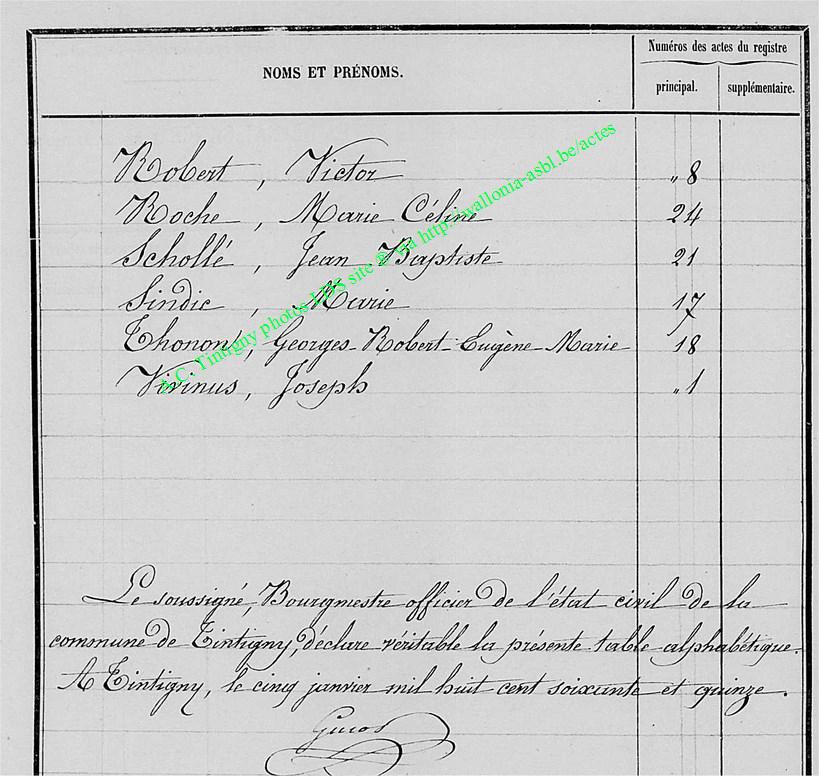 Numéros des actes du registre
NOMS ET PRÉNOMS.
principal. supplémentaire.
Robert, Victor „8
Roche, Marie Céline 24
Schollé, Jean Baptiste 21
Sindic, Marie 17
Thonon, Georges-Robert-Eugène-Marie 18
Virinus, Joseph „1
A.C. Tintigny photos LDS site © via http://wallonia-asbl.be/actes
Le soussigné, Bourgmestre officier de l'état civil de la
commune de Tintigny, déclare véritable la présente table alphabétique.
A Tintigny, le cinq janvier mil huit cent soixante et quinze.